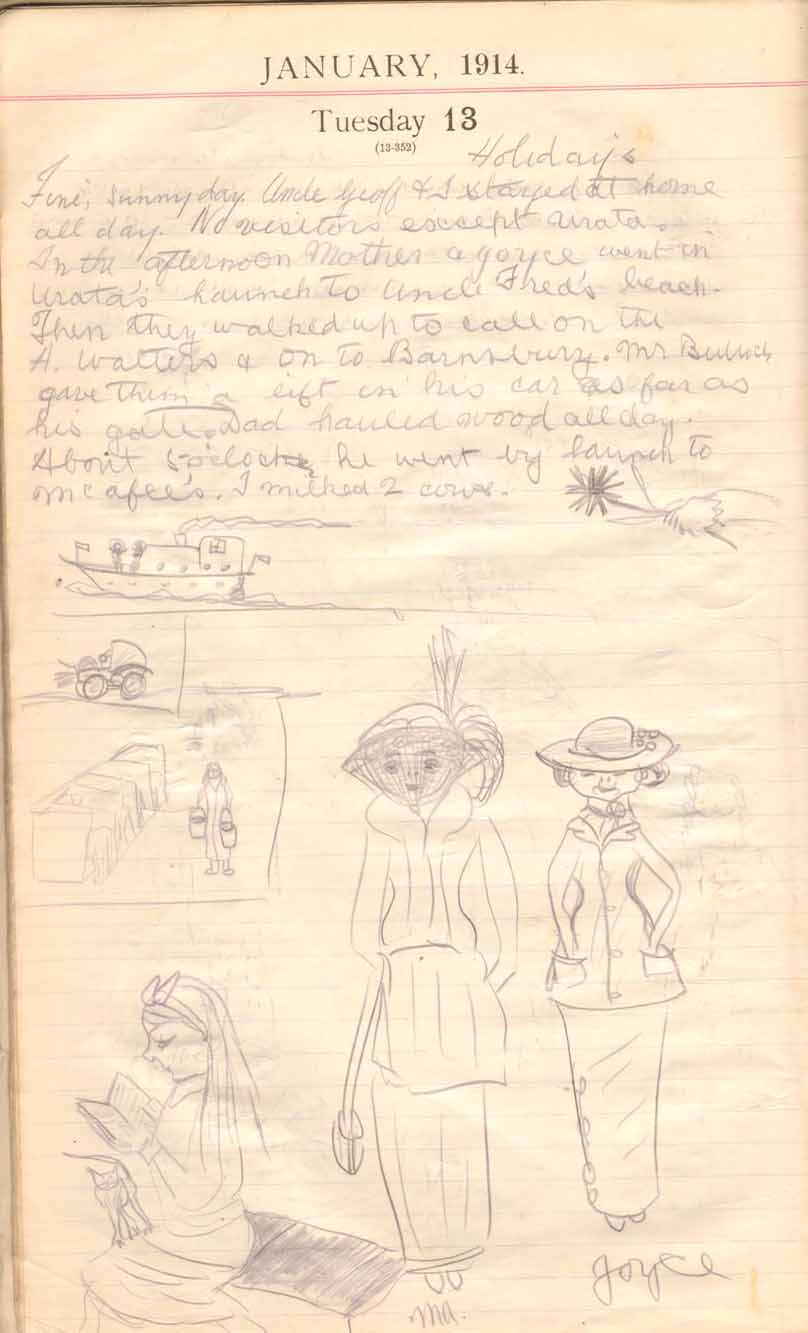 JANUARY, 1914.
Tuesday 13
(13-352)
Holiday's
Fine, sunny day. Uncle Geoff & I stayed at home
all day. No visitors except Urata.
In the afternoon Mother & Joyce went in
Urata's launch to Uncle Fred's beach.
Then they walked up to call on the
A. Walters & on to Barnsbury. Mr Bullock
gave them a lift in his car as far as
his gate. Dad hauled wood all day.
About 5 o'clock he went by launch to
McAfee's. I milked 2 cows.
Ma.
Joyce